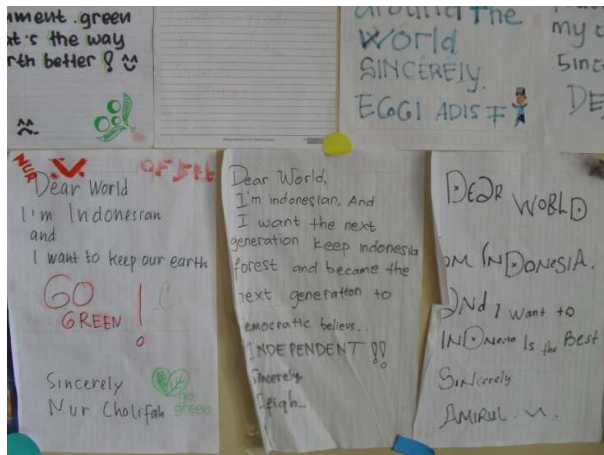 nment.green
at's the way
rth better !
around the
World
SINCERELY.
EGGI ADIS F
my
Since
DE
NUR
Dear World
I'm Indonesian
and
I want to keep our earth
GO
GREEN !
Sincerely
Nur Cholifah
go
green
Dear World,
I'm indonesian, And
I want the next
generation keep indonesia
forest and became the
next generation to
emocratic believs..
INDEPENDENT !!
Sincerely
DEAR WORLD
OM INDONESIA.
AND I Want to
INDOnesia Is the Best
Sincerely
AMIRUL. U.